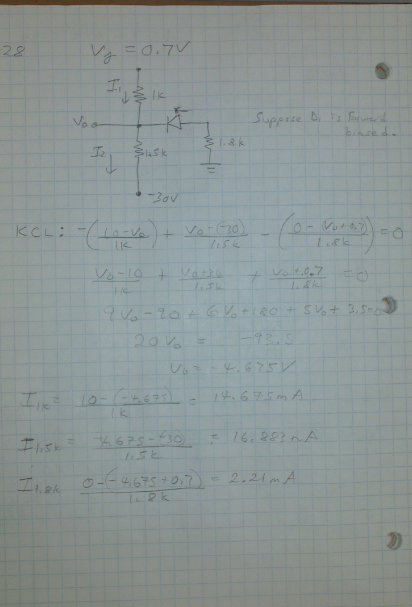 28
Vγ = 0.7V
I₁ ↓ 1k
Vo
Suppose D₁ is forward
biased.
I₂ ↓ 1.5k
1.8k
-30V
KCL: -((10-Vo)/1k) + (Vo-(-30))/1.5k - ((0-(Vo+0.7))/1.8k) = 0
(Vo-10)/1k + (Vo+30)/1.5k + (Vo+0.7)/1.8k = 0
9Vo - 90 + 6Vo + 180 + 5Vo + 3.5 = 0
20Vo = -93.5
Vo = -4.675V
I1k = (10-(-4.675))/1k = 14.675mA
I1.5k = (-4.675-(-30))/1.5k = 16.883mA
I1.8k (0-(-4.675+0.7))/1.8k = 2.21mA